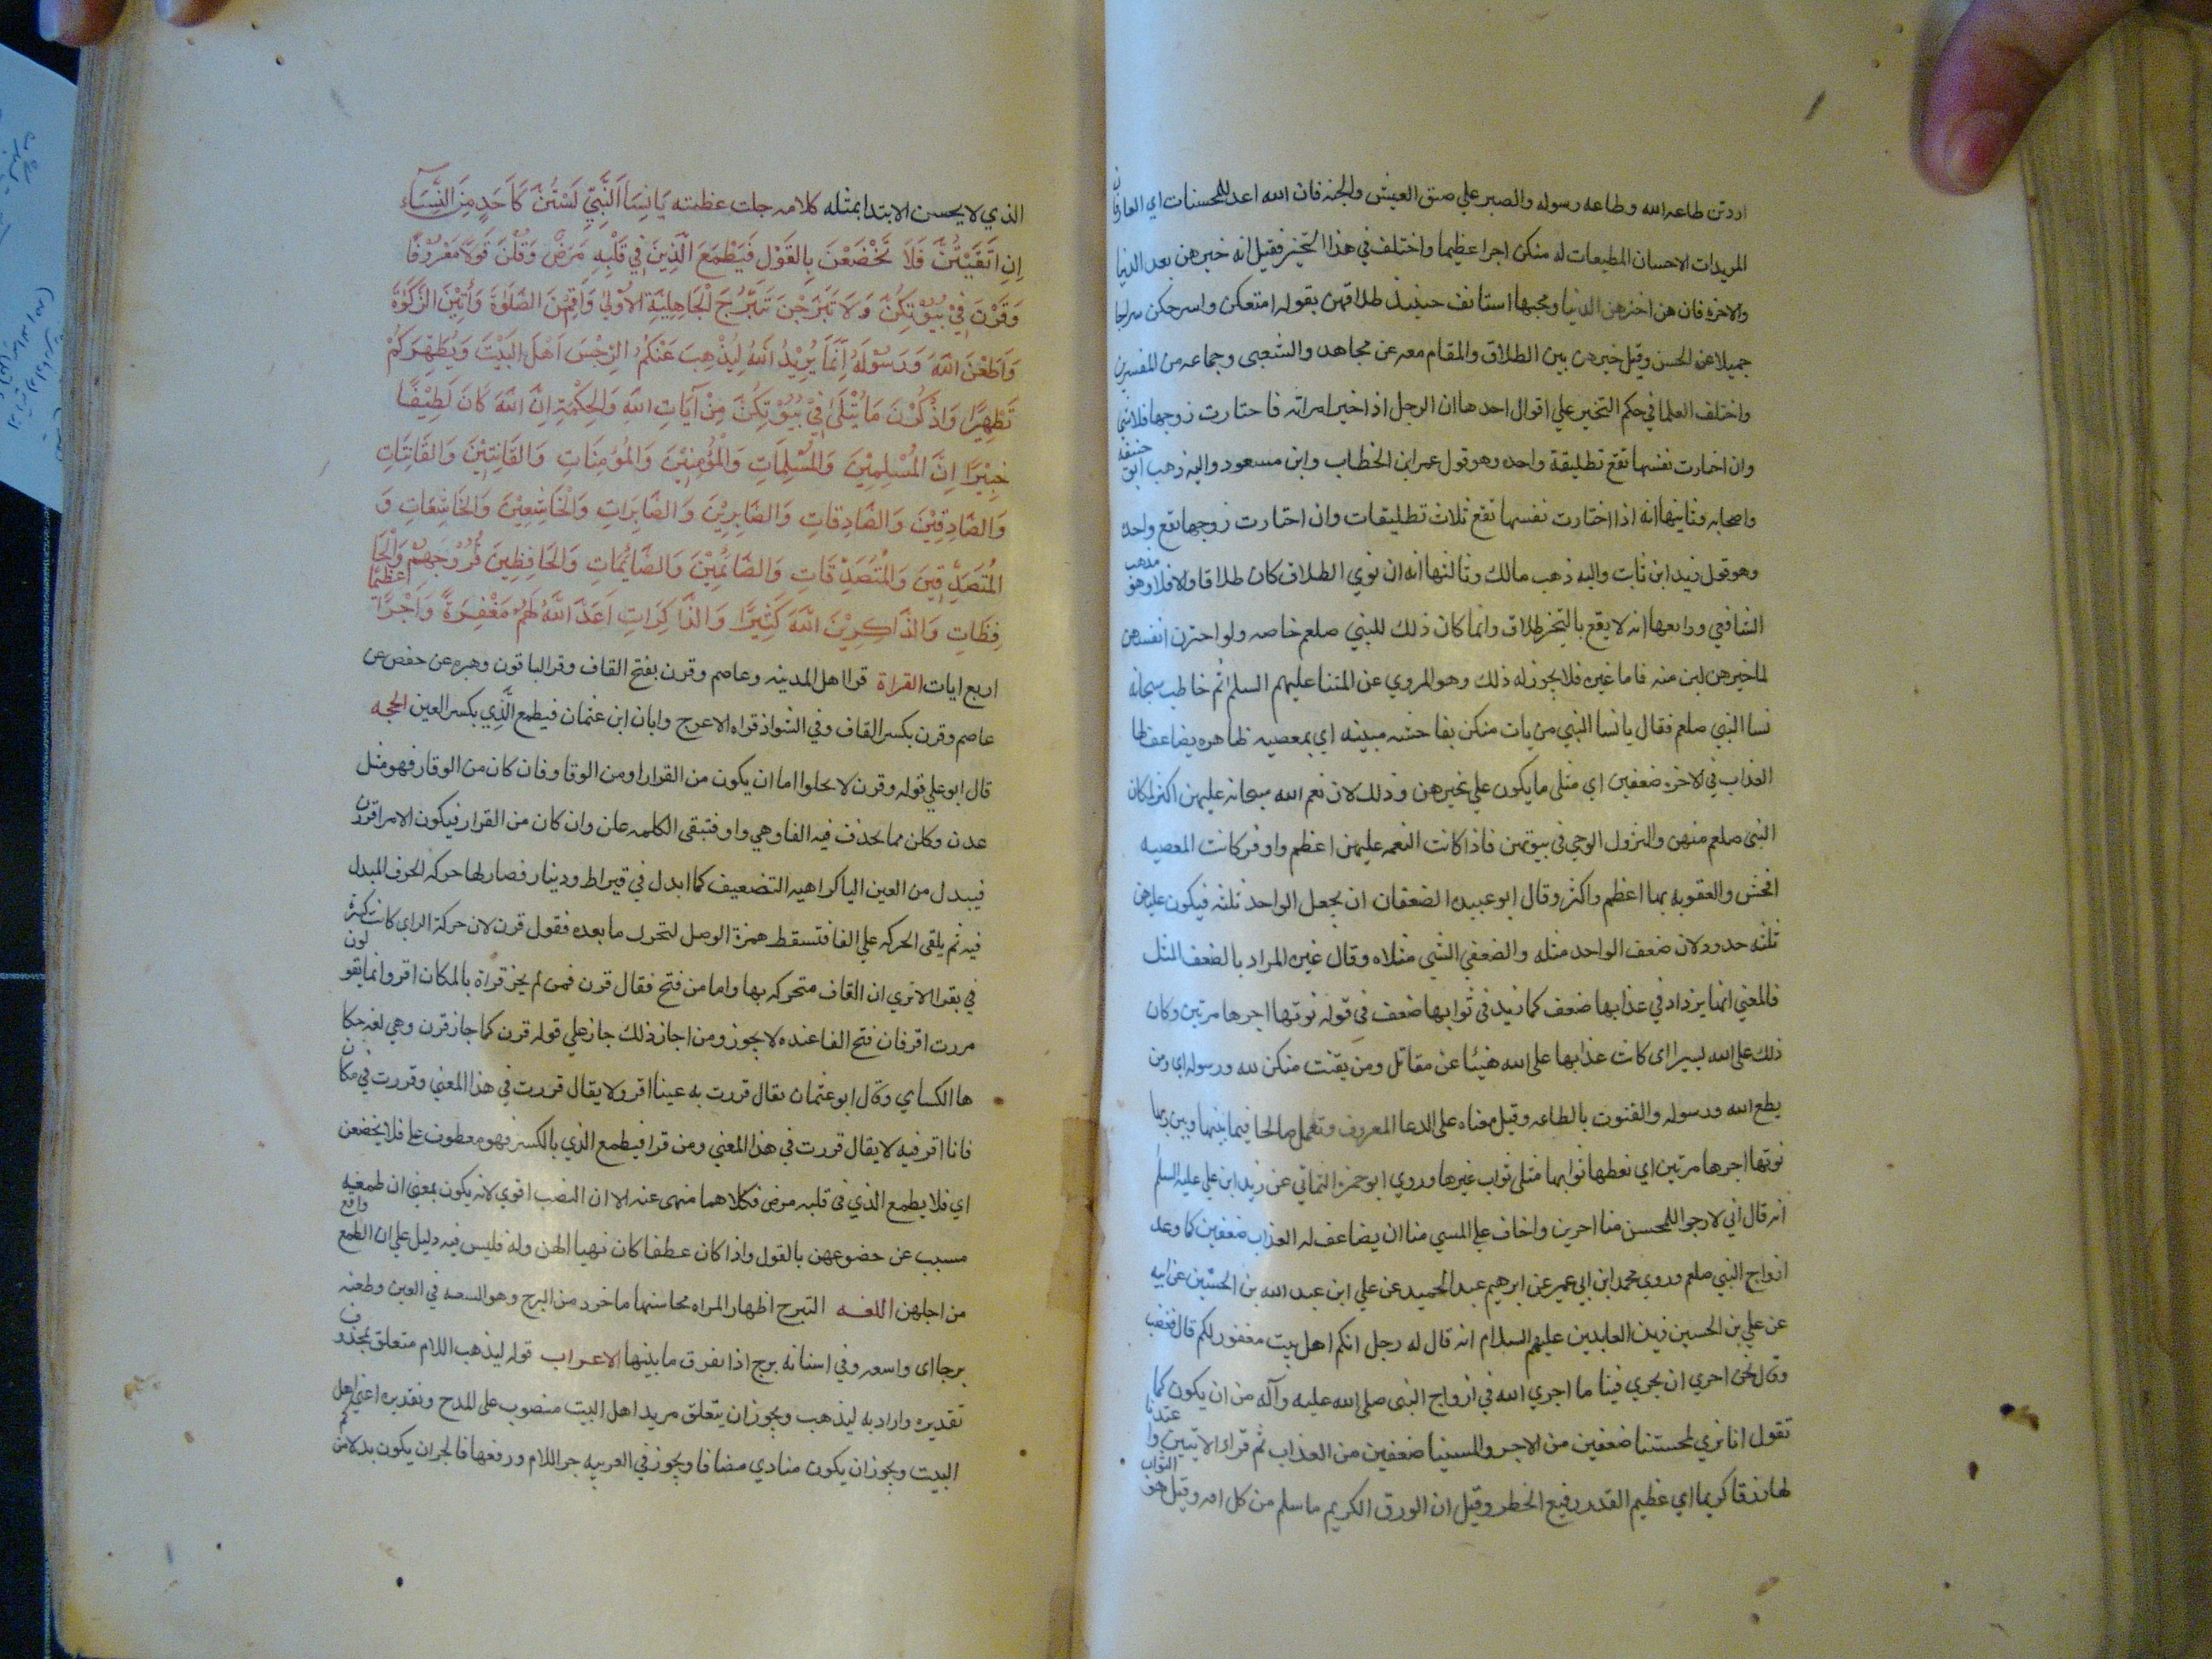 اردتن طاعه الله وطاعه رسوله والصبر علي ضيق العيش والجنه فان الله اعد للمحسنات اي العارفات
المريدات الاحسان المطيعات له منكن اجرا عظيما واختلف في هذا التخير فقيل انه خيرهن بعد الدنيا
والاخره فان هن اخترهن الدنيا ومحبها استانف حينيذ طلاقهن بقوله امتعكن واسرحكن سراحا
جميلا عن الحسن وقيل خيرهن بين الطلاق والمقام معه عن مجاهد والشعبي وجماعه من المفسرين
واختلف العلما في حكم التخير علي اقوال احدها ان الرجل اذا خير امراته فاختارت زوجها فلا شي
وان اختارت نفسها تقع تطليقة واحده وهو قول عمر ابن الخطاب وابن مسعود واليه ذهب ابو حنيفه
واصحابه وثانيها انه اذا اختارت نفسها تقع ثلاث تطليقات وان اختارت زوجها تقع واحده
وهو قول زيد ابن ثابت واليه ذهب مالك وثالثها انه ان نوي الطلاق كان طلاقا والا فلا وهو مذهب
الشافعي ورابعها انه لا يقع بالتخير طلاق وانما كان ذلك للنبي صلعم خاصه ولو اخترن انفسهن
لما خيرهن لبن منه فاما غيره فلا يجوز له ذلك وهو المروي عن ائمتنا عليهم السلم ثم خاطب سبحانه
نسا النبي صلعم فقال يا نسا النبي من يات منكن بفاحشه مبينه اي بمعصيه ظاهره يضاعف لها
العذاب في الاخره ضعفين اي مثلي ما يكون علي غيرهن وذلك لان نعم الله سبحانه عليهن اكثر لمكان
النبي صلعم منهن والنزول الوحي في بيوتهن فاذا كانت النعمه عليهن اعظم واوفر كانت المعصيه
افحش والعقوبه بها اعظم واكثر وقال ابو عبيده الضعفان ان يجعل الواحد ثلثه فيكون عليهن
ثلثه حدود لان ضعف الواحد مثله والضعفي الشي مثلاه وقال غيره المراد بالضعف المثل
فالمعني انما يزداد في عذابها ضعف كما زيد في ثوابها ضعف في قوله نوتها اجرها مرتين وكان
ذلك علي الله يسيرا اي كان عذابها علي الله هينا عن مقاتل ومن يقنت منكن لله ورسوله اي ومن
يطع الله ورسوله والقنوت بالطاعه وقيل معناه علي الدعا المعروف وتعمل صالحا فيما بينها وبين ربها
نوتها اجرها مرتين اي نعطها ثوابها مثلي ثواب غيرها وروي ابو حمزه الثمالي عن زيد ابن علي عليه السلم
انه قال اني لارجوا للمحسن منا اجرين واخاف علي المسي منا ان يضاعف له العذاب ضعفين كما وعد
ازواج النبي صلعم وروي محمد ابن ابي عمير عن ابرهيم عبد الحميد عن علي ابن عبد الله بن الحسين عن ابيه
عن علي بن الحسين زين العابدين عليهم السلام انه قال له رجل انكم اهل بيت مغفور لكم قال فغضب
وقال نحن احري ان يجري فينا ما اجري الله في ازواج النبي صلي الله عليه وآله من ان يكون كما
تقول انا نري لمحسننا ضعفين من الاجر والمسينا ضعفين من العذاب ثم قرا الايتين واعتدنا
لها رزقا كريما اي عظيم القدر رفيع الخطر وقيل ان الورق الكريم ما سلم من كل افه وقيل هو الثواب
الذي لا يحسن الابتدا بمثله كلامه جلت عظمته يَانِسَاَ النَّبِيِّ لَسْتُنَّ كَاَحَدٍ مِنَ النِّسَاءِ
اِنِ اتَّقَيْتُنَّ فَلَا تَخْضَعْنَ بِالقَوْلِ فَيَطْمَعَ الَّذِينَ فِي قَلْبِهِ مَرَضٌ وَقُلْنَ قَوْلًا مَعْرُوْفًا
وَقَرْنَ فِيْ بُيُوْتِكُنَّ وَلَا تَبَرَّجْنَ تَبَرُّجَ الْجَاهِلِيَّةِ الْاُوْلٰي وَاَقِمْنَ الصَّلٰوةَ وَاٰتِيْنَ الزَّكٰوةَ
وَاَطِعْنَ اللهَ وَرَسُوْلَهُ اِنَّمَا يُرِيْدُ اللهُ لِيُذْهِبَ عَنْكُمُ الرِّجْسَ اَهْلَ الْبَيْتِ وَيُطَهِّرَكُمْ
تَطْهِيْرًا وَاذْكُرْنَ مَا يُتْلٰي فِيْ بُيُوْتِكُنَّ مِنْ آيَاتِ اللهِ وَالْحِكْمَةِ اِنَّ اللهَ كَانَ لَطِيْفًا
خَبِيْرًا اِنَّ الْمُسْلِمِيْنَ وَالْمُسْلِمَاتِ وَالْمُؤْمِنِيْنَ وَالْمُؤْمِنَاتِ وَالقَانِتِيْنَ وَالقَانِتَاتِ
وَالصَّادِقِيْنَ وَالصَّادِقَاتِ وَالصَّابِرِيْنَ وَالصَّابِرَاتِ وَالْخَاشِعِيْنَ وَالْخَاشِعَاتِ وَ
الْمُتَصَدِّقِيْنَ وَالْمُتَصَدِّقَاتِ وَالصَّائِمِيْنَ وَالصَّائِمَاتِ وَالْحَافِظِيْنَ فُرُوْجَهُمْ وَالْحَا
فِظَاتِ وَالذَّاكِرِيْنَ اللهَ كَثِيْرًا وَالذَّاكِرَاتِ اَعَدَّ اللهُ لَهُمْ مَغْفِرَةً وَاَجْرًا عَظِيْمًا
اربع ايات القراة قرا اهل المدينه وعاصم وقرن بفتح القاف وقرا الباقون وهبره عن حفص عن
عاصم وقرن بكسر القاف وفي الشواذ قراه الاعرج وابان ابن عثمان فيطمع الَّذِي بكسر العين الحجه
قال ابو علي قوله وقرن لا يخلوا اما ان يكون من القرار او من الوقار فان كان من الوقار فهو مثل
عدن وكلن مما يحذف فيه الفا وهي واو فتبقي الكلمه علن وان كان من القرار فيكون الامر اقررن
فيبدل من العين اليا كراهيه التضعيف كما ابدل في قيراط ودينار فصار لها حركه الحرف المبدل
فيه ثم يلقي الحركه علي الفا فتسقط همزة الوصل لتحرك ما بعده فقول قرن لان حركة الراي كانت كسرة
في بقرا الا تري ان القاف متحركه بها واما من فتح فقال قرن فمن لم يجز قراة بالمكان اقر وانما يقولون
مررت اقر فان فتح الفا عنده لا يجوز ومن اجاز ذلك جاز علي قوله قرن كما جاز قرن وهي لغه حكا
ها الكساي وقال ابو عثمان يقال قررت به عينا اقر ولا يقال قررت في هذا المعني وقررت في مكان
فانا اقر فيه لا يقال قررت في هذا المعني ومن قرا فيطمع الذي بالكسر فهو معطوف علي فلا يخضعن
اي فلا يطمع الذي في قلبه مرض فكلاهما منهي عنه الا ان النصب اقوي لانه يكون بمعني ان طمعه واقع
مسبب عن خضوعهن بالقول واذا كان عطفا كان نهيا لهن وله فليس فيه دليل علي ان الطمع
من اجلهن اللغه التبرج اظهار المراه محاسنها ماخوذ من البرج وهو السعه في العين وطعنه
برجا اي واسعه وفي اسنانه برج اذا تفرق ما بينها الاعراب قوله ليذهب اللام متعلق بمحذوف
تقديره واراد به ليذهب ويجوز ان يتعلق مريد اهل البيت منصوب علي المدح وتقديره اعني اهل
البيت ويجوز ان يكون منادي مضافا ويجوز في العربيه جر اللام ورفعها فالجر ان يكون بدلا من كم